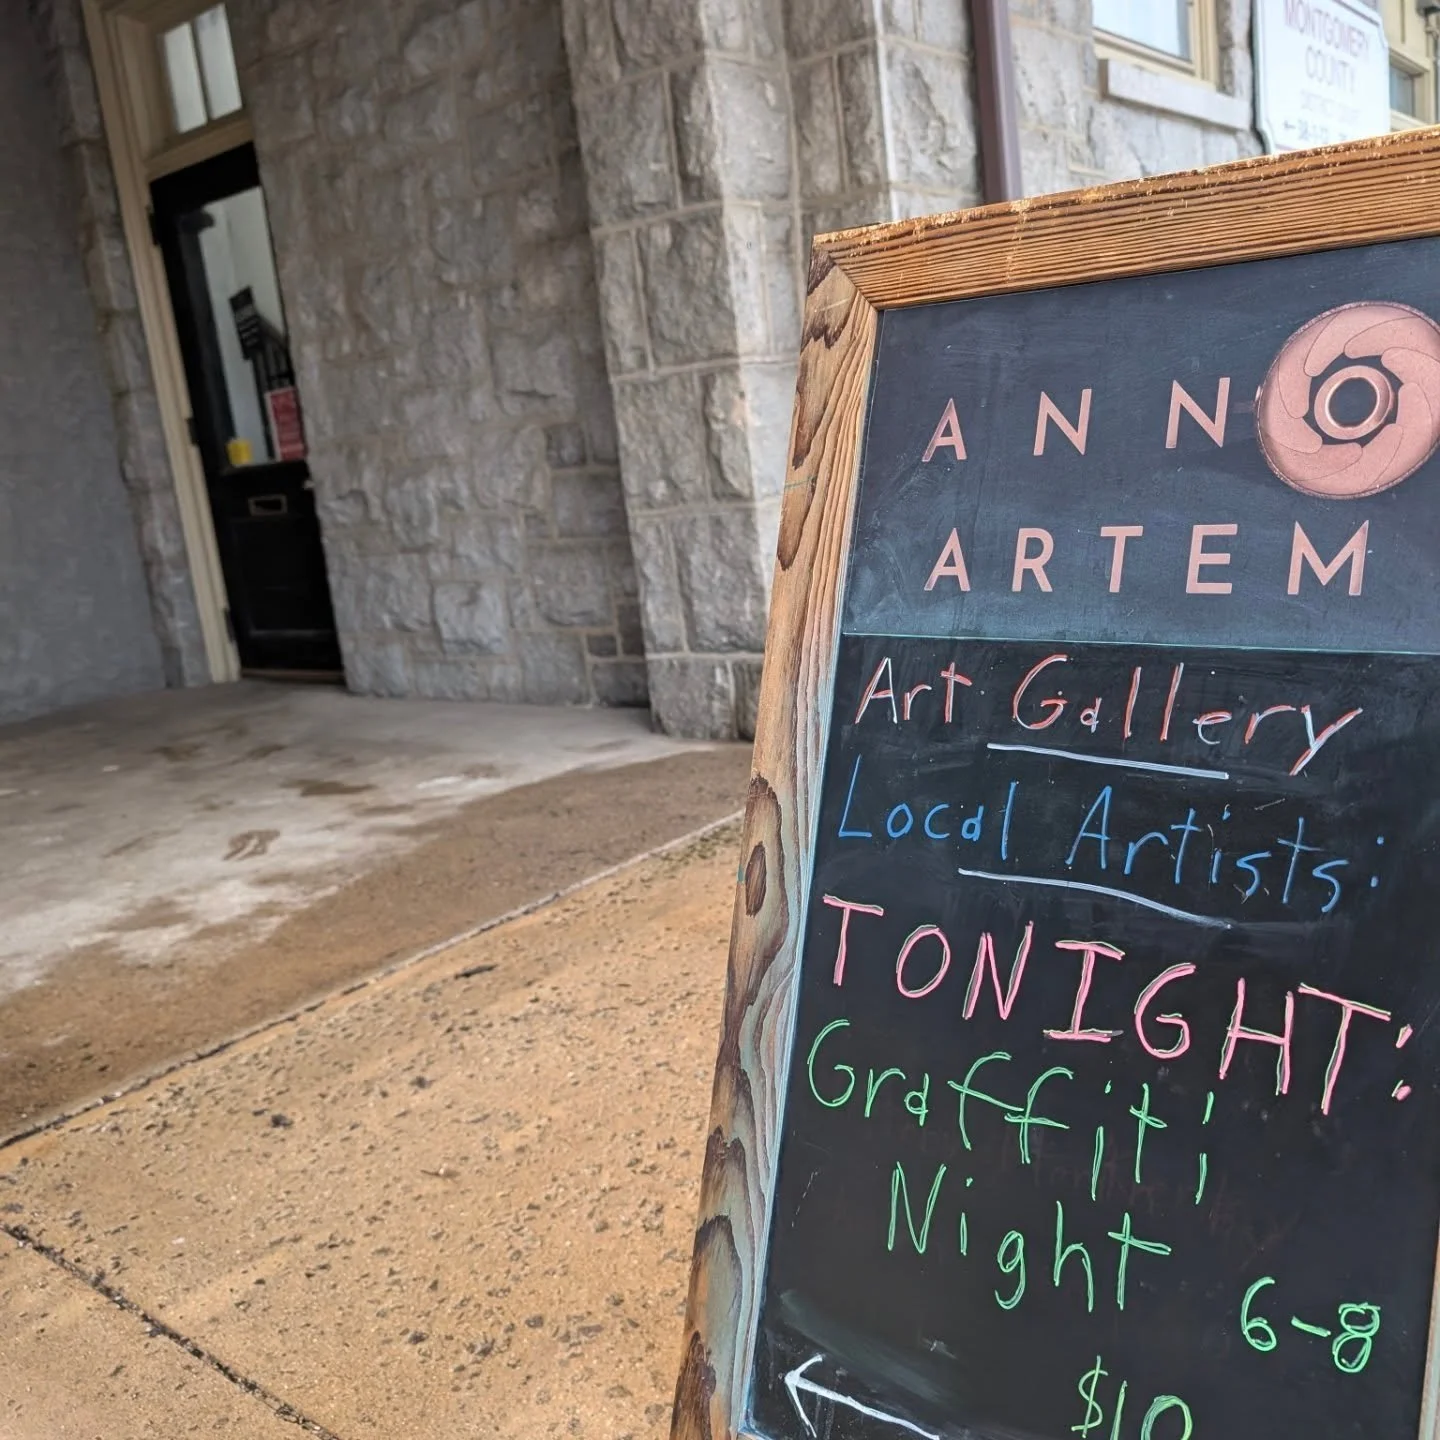 MONTGOMERY
COUNTY
DISTRICT COURT
ANNO
ARTEM
Art Gallery
Local Artists:
TONIGHT:
Graffiti
Night
6-8
$10